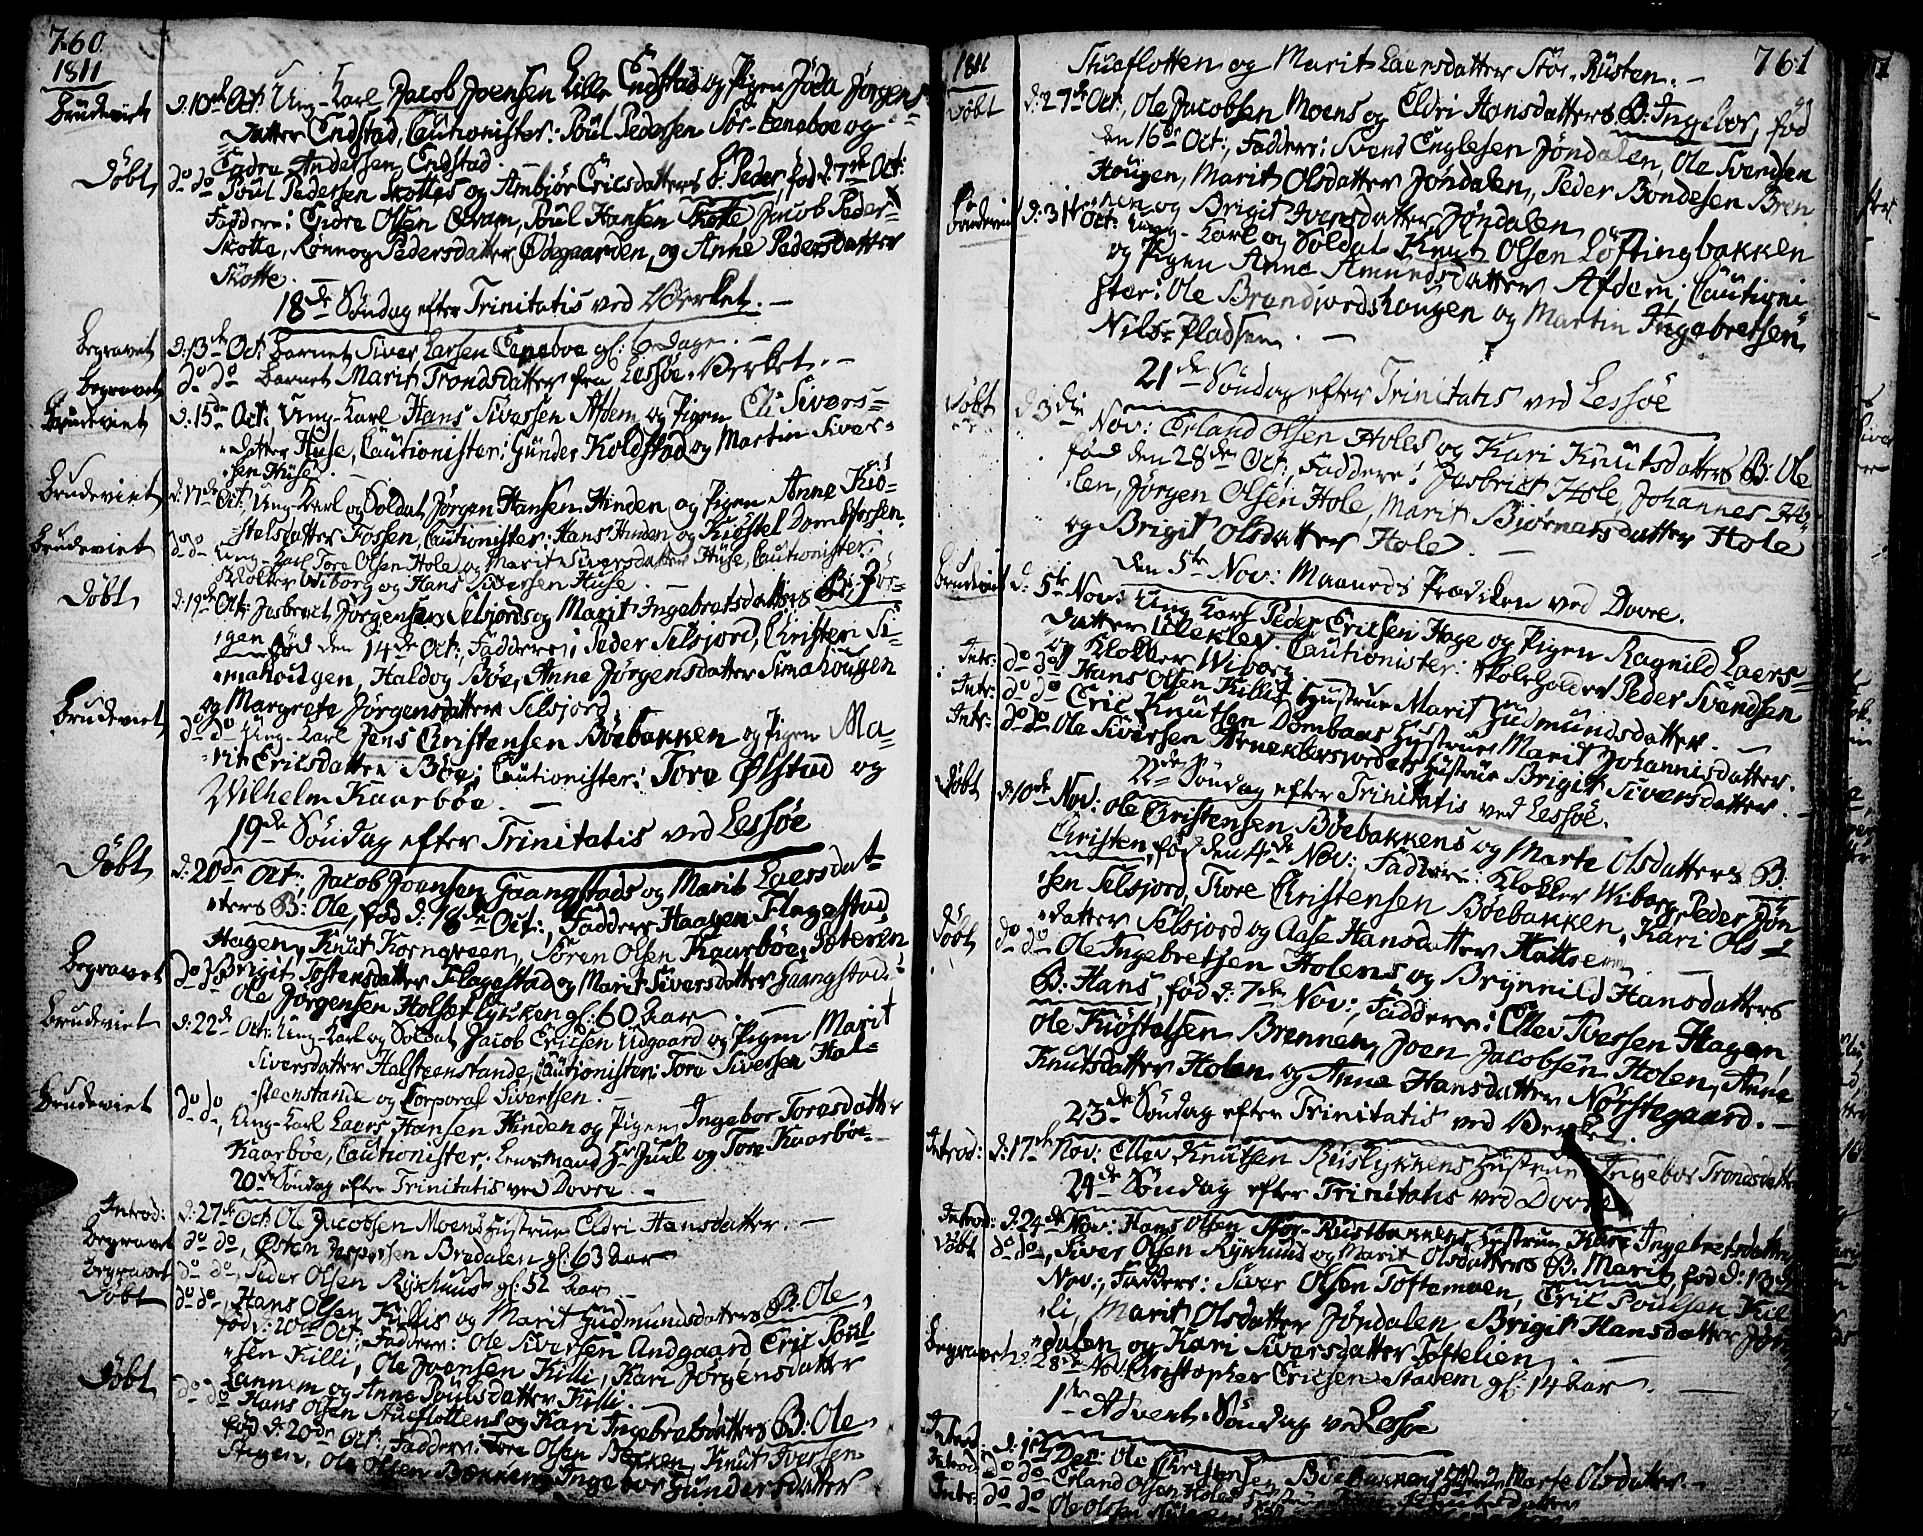 760
1811
Brudeviet d: 10de Oct: Ung-Karl Jacob Joensen Lille Endstad og Pigen Jøda Jørgens-
datter Endstad, Cautionister: Poul Pedersen Sør-Eeneboe og
Endre Andersen Endstad. —
Døbt do do Poul Pedersen Skottes og Ambiør Ericsdatters B: Peder, fød d: 7de Oct:
Faddere: Endre Olsen, Poul Hansen Skotte, Jacob Peder-
Skotte, Rønnog Pedersdatter Ødegaarden, og Anne Pedersdatter
Skotte.
18de Søndag efter Trinitatis ved Værket. —
Begravet d: 13de Oct: Barnet Siver Larsen Eeneboe gl: 6 Dage. —
Begravet do do Barnet Marit Trondsdatter fra Lessøe-Verket. —
Brudeviet d: 15de Oct: Ung-Karl Hans Siversen Afdem og Pigen Eli Sivers-
datter Huse, Cautionister: Gunder Koldstad og Martin Siver-
sen Huse.
Brudeviet d: 17de Oct: Ung-Karl og Soldat Jørgen Hansen Hinden og Pigen Anne Kiø-
stelsdatter Fossen, Cautionister: Hans Hinden og Kiøstel Dombfossen.
Brudeviet do do Ung-Karl Tore Olsen Hole og Marit Siversdatter Huse, Cautionister:
Klokker Wiborg og Hans Siversen Huse. —
Døbt d: 19de Oct: Jesbrect Jørgensen Selsjords og Marit Ingebretsdatters B: Jør-
gen fød den 14de Oct:, Faddere: Peder Selsjord, Christen Si-
mahougen, Haldog Bøe, Anne Jørgensdatter Simahougen
og Margrete Jørgensdatter Selsjord.
Brudeviet do do Ung-Karl Jens Christensen Bøebakken og Pigen Ma-
rit Ericsdatter Bøe; Cautionister: Tore Ølstad og
Wilhelm Kaarbøe. —
19de Søndag efter Trinitatis ved Lessøe
Døbt d: 20de Oct: Jacob Joensen Gaangstads og Marit Laersdat-
ters B: Ole, fød d: 18de Oct:, Faddere Haagen Flagestad,
Hagen, Knut Korngreen, Søren Olsen Kaarbøe,
Brigit Tostensdatter Flagestad og Marit Siversdatter Gaangstad.
Begravet do do Ole Jørgensen Holsetlycken gl: 60 Aar. —
Brudeviet d: 22de Oct: Ung-Karl og Soldat Jacob Ericsen Udgaard og Pigen Marit
Siversdatter Halsteenstande, Cautionister: Tore Siversen Hal-
steenstande og Corporal Sivertsen. —
Brudeviet do do, Ung-Karl Laers Hansen Hinden og Pigen Ingebor Toresdatter
Kaarbøe, Cautionister: Lensmand Hr Juul og Tore Kaarbøe
20de Søndag efter Trinitatis ved Dovre. —
Introd: d: 27de Oct: Ole Jacobsen Moens Hustrue Eldri Hansdatter. —
Begravet do do, Østen Jespersen Bredalen gl: 63 Aar
Begravet do do, Peder Olsen Rykhuus gl: 52 Aar
Døbt do do, Hans Olsen Killis og Marit Gudmundsdatters B: Ole,
fød d: 20de Oct: Faddere: Ole Siversen Andgaard, Eric Poul-
sen Killi, Ole Joensen Killi, Kari Jørgensdatter
Lannem og Anne Poulsdatter Killi. —
Døbt do do Hans Olsen Stueflottens og Kari Ingebretsdatters B: Ole,
fød d: 20de Oct:, Faddere: Tore Olsen Bekken, Knut Iversen
Stegen, Ole Olsen Bekken, Ingebor Gundersdatter
1811 761
Stueflotten og Marit Laersdatter Stor-Rusten. —
Døbt d: 27de Oct:, Ole Jacobsen Moens og Eldri Hansdatters B: Ingebor, fød
den 16de Oct:, Faddere: Svend Englesen Jøndalen, Ole Svendsen
Hougen, Marit Olsdatter Jøndalen, Peder Bondesen Bren-
nen og Brigit Iversdatter Jøndalen
Brudeviet d: 31te Oct: Ung-Karl og Soldat Knut Olsen Løftingbakken
og Pigen Anne Amundsdatter Afdem; Cautioni-
ster: Ole Brandjordshougen og Martin Ingebretsen
Nils-Pladsen. —
21de Søndag efter Trinitatis ved Lessøe
Døbt d: 3die Nov: Erland Olsen Holes og Kari Knutsdatters B: Ole
fød den 28de Oct:, Faddere: Jesbrect Hole, Johannes Ho-
len, Jørgen Olsen Hole, Marit Biørnersdatter Hole
og Brigit Olsdatter Hole. —
Den 5te Nov: Maaneds Prædiken ved Dovre.
Brudeviet d: 5te Nov: Ung Karl Peder Ericsen Hage og Pigen Ragnild Laers-
datter Ullekler. Cautionister: Skoleholder Peder Svendsen
og Klokker Wiborg. —
Intr: do do Hans Olsen Killis Hustrue Marit Gudmundsdatter. —
Intr: do do Eric Knutsen Dombaas Hustrue Marit Johannisdatter.
Intr: do do Ole Siversen Hustrue Brigit Siversdatter.
22de Søndag efter Trinitatis ved Lessøe.
Døbt d: 10de Nov: Ole Christensen Bøebakkens og Marte Olsdatters B:
Christen, fød den 4de Nov:, Faddere: Klokker Wiborg, Peder Jøn-
sen Selsjord, Tore Christensen Bøebakken, Kari Ols-
datter Selsjord og Aase Hansdatter Hattrem. —
Døbt do do Ole Ingebretsen Holens og Brynnild Hansdatters
B: Hans, fød d: 7de Nov:, Faddere: Ellev Iversen Hagen
Ole Kiøstelsen Brennen, Joen Jacobsen Holen, Anne
Knutsdatter Holen og Anne Hansdatter Norstegaard. —
23de Søndag efter Trinitatis ved Verket.
Introd: d: 17de Nov: Ellev Knutsen Rislykkens Hustrue Ingebor Trondsdatter
24de Søndag efter Trinitatis ved Dovre
Introd: d: 24de Nov: Hans Olsen Stor-Rustbakkens Hustrue Kari Ingebretsdatter
Døbt do do, Siver Olsen Rykhuus og Marit Olsdatters B: Marit, fød d: 13de
Nov:, Faddere: Siver Olsen Toftemoen, Eric Poulsen Kil-
li, Marit Olsdatter Jøndalen, Brigit Hansdatter Jøn-
dalen og Kari Siversdatter Toftelien. —
Begravet d: 28de Nov: Christopher Ericsen Stavem gl: 14 Aar. —
1te Advent-Søndag ved Lessøe
Introd: d: 1te Dec: Ole Christensen Bøebakkens Hustrue Marte Olsdatter. —
Introd: do do Erland Olsen Holes Hustrue Kari Knutsdatter
Intr: do do Ole Olsen